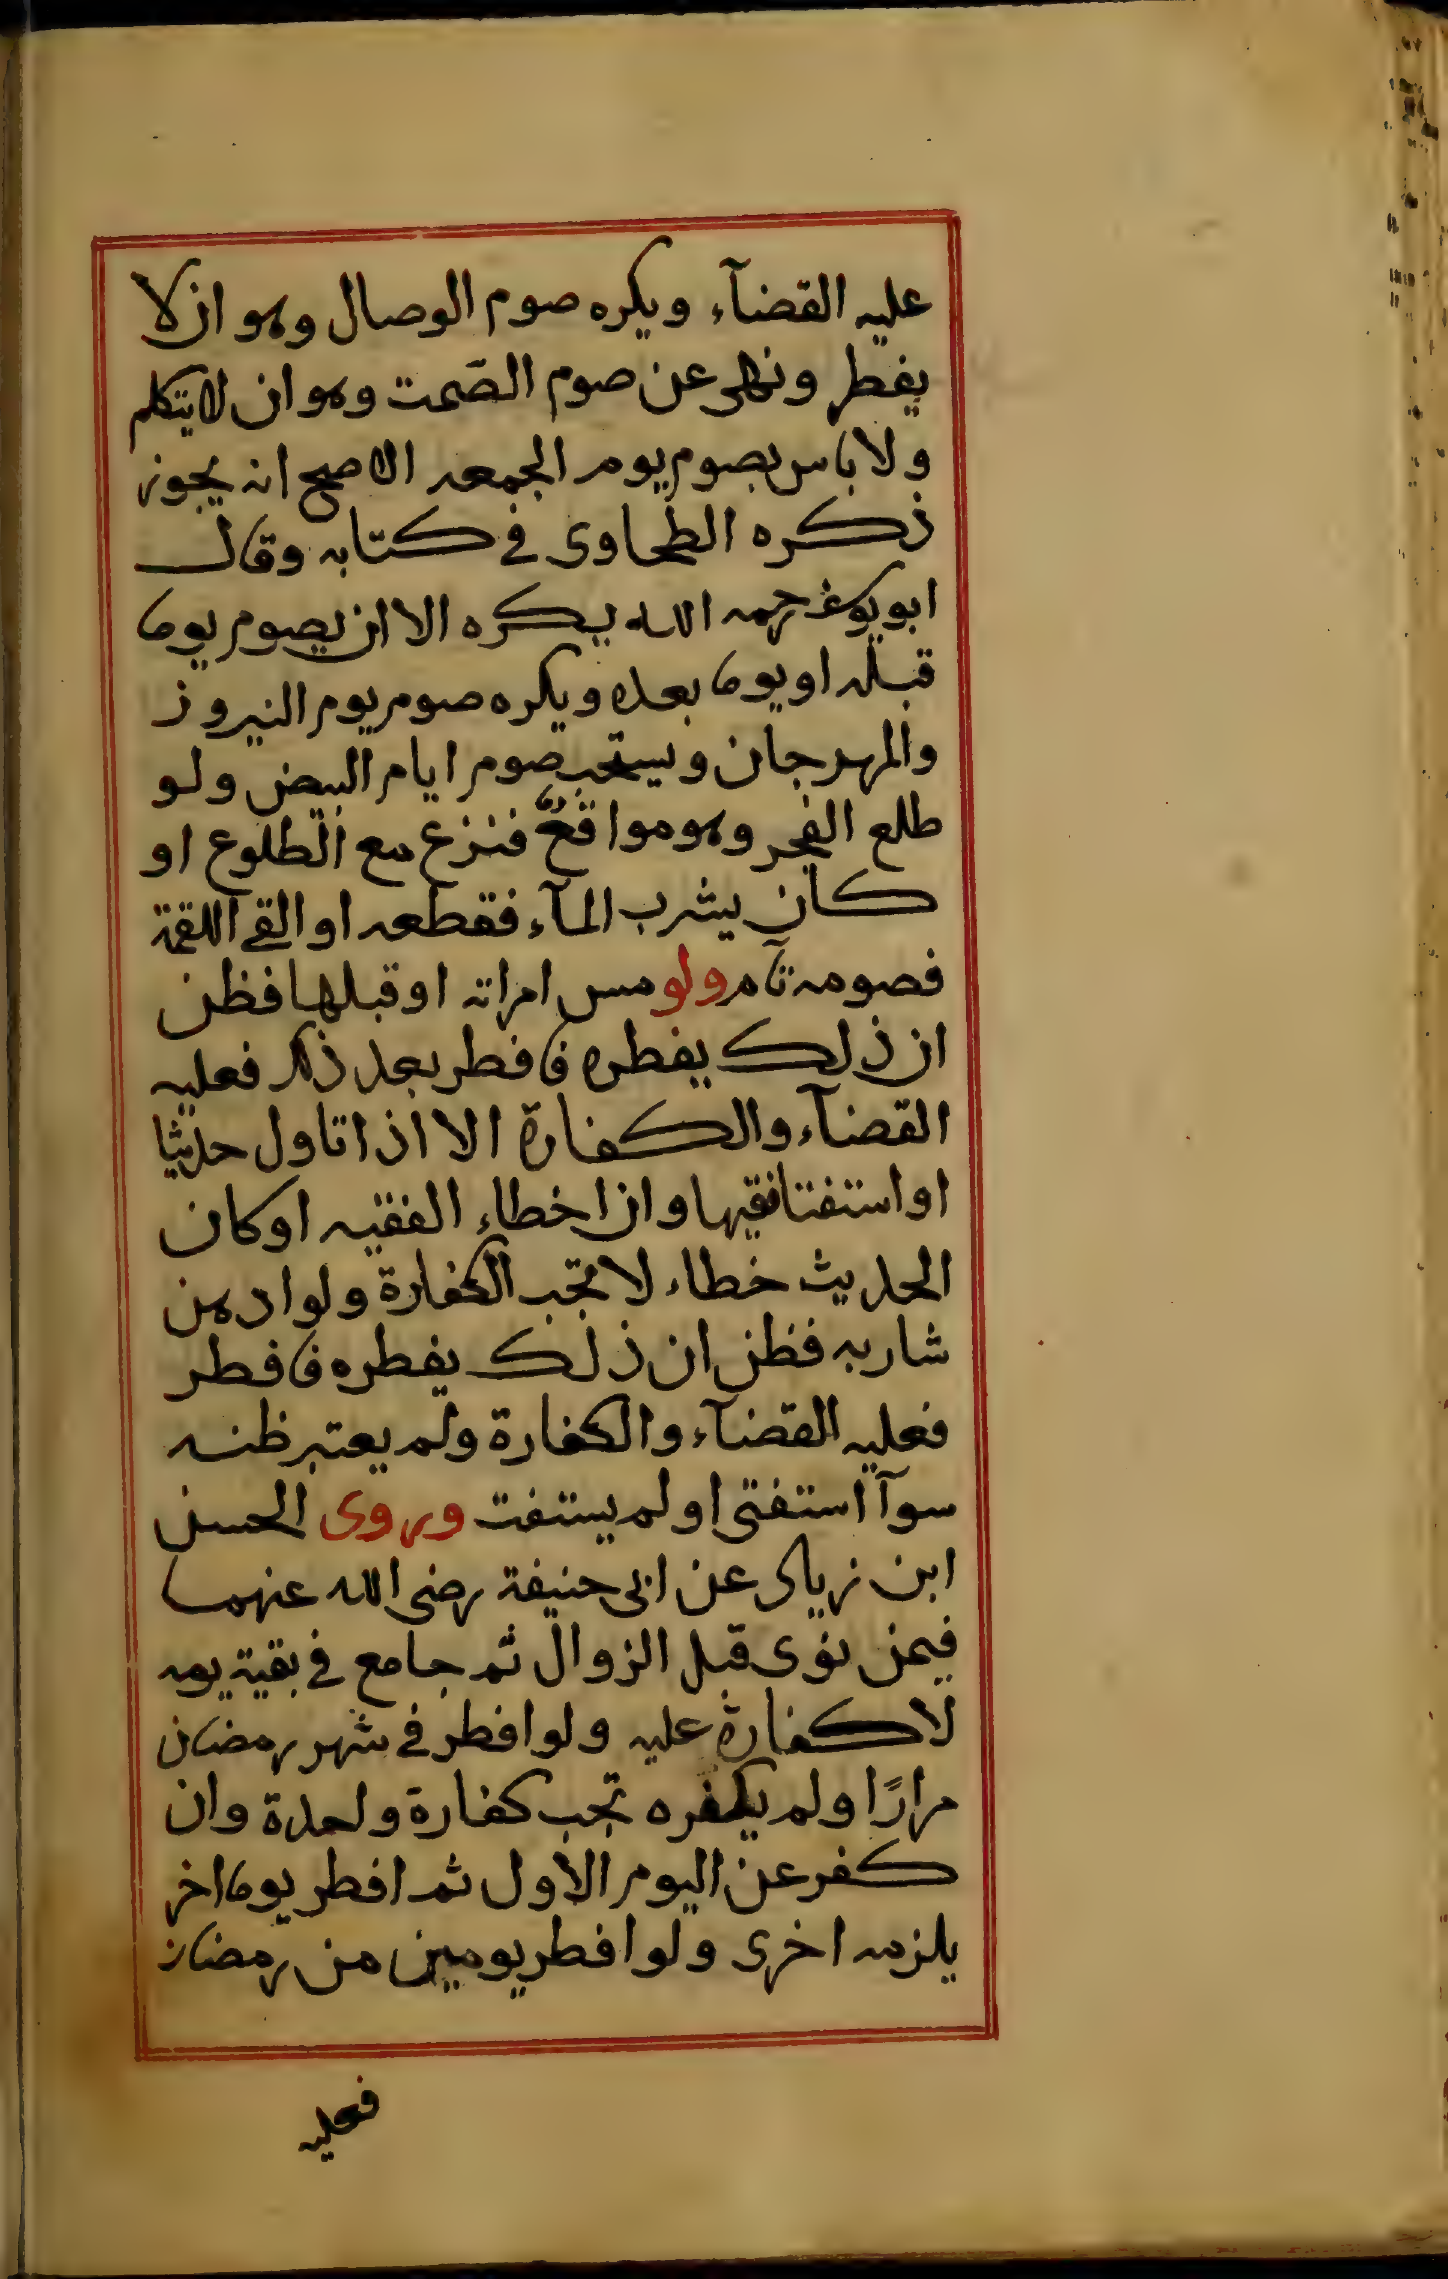 عليه القضآء ويكره صوم الوصال وهو ان لا
يفطر ونهى عن صوم الصّمت وهو ان لا يتكلم
ولا باس بصوم يوم الجمعه الاصح انه يجوز
ذكره الطحاوى فى كتابه وقال
ابو يوسف رحمه الله يكره الا ان يصوم يوما
قبله او يوما بعده ويكره صوم يوم النيروز
والمهرجان ويستحب صوم ايام البيض ولو
طلع الفجر وهو مواقع فنزع مع الطلوع او
كان يشرب المآء فقطعه او القى اللقمة
فصومه تآم ولو مس امراته او قبلها فظن
ان ذلك يفطره فافطر بعد ذلك فعليه
القضآء والكفارة الا اذا تاول حديثا
او استفتا فقيها وان اخطاء الفقيه او كان
الحديث خطاء لا تجب الكفارة ولو ادهن
شاربه فظن ان ذلك يفطره فافطر
فعليه القضآء والكفارة ولم يعتبر ظنه
سوآ استفتى او لم يستفت وروى الحسن
ابن زياد عن ابى حنيفة رضى الله عنهما
فيمن نوى قبل الزوال ثم جامع فى بقية يومه
لا كفارة عليه ولو افطر فى شهر رمضان
مرارًا ولم يكفره تجب كفارة واحدة وان
كفر عن اليوم الاول ثم افطر يوما اخر
يلزمه اخرى ولو افطر يومين من رمضان
فعليه